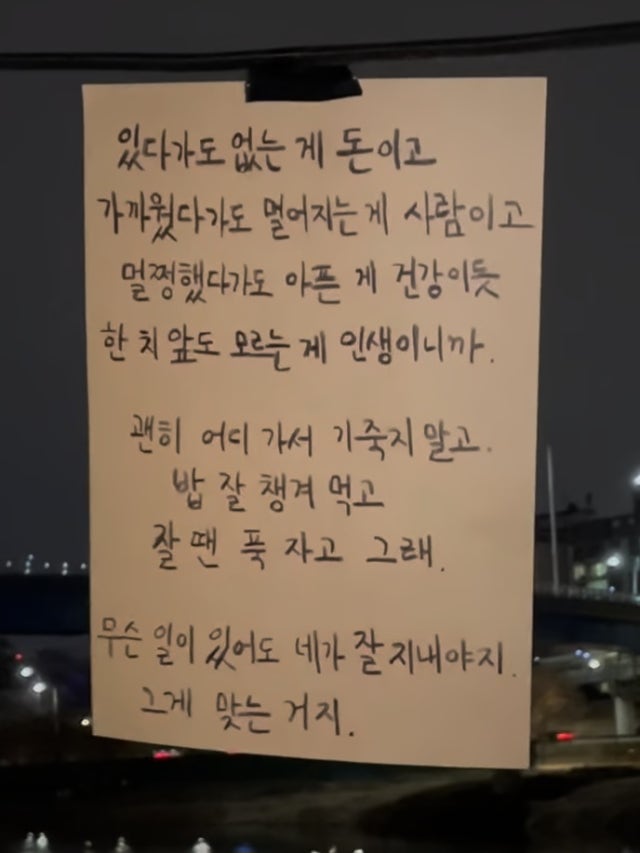 있다가도 없는 게 돈이고
가까웠다가도 멀어지는 게 사람이고
멀쩡했다가도 아픈 게 건강이듯
한 치 앞도 모르는 게 인생이니까.
괜히 어디 가서 기죽지 말고.
밥 잘 챙겨 먹고
잘 땐 푹 자고 그래.
무슨 일이 있어도 네가 잘 지내야지.
그게 맞는 거지.